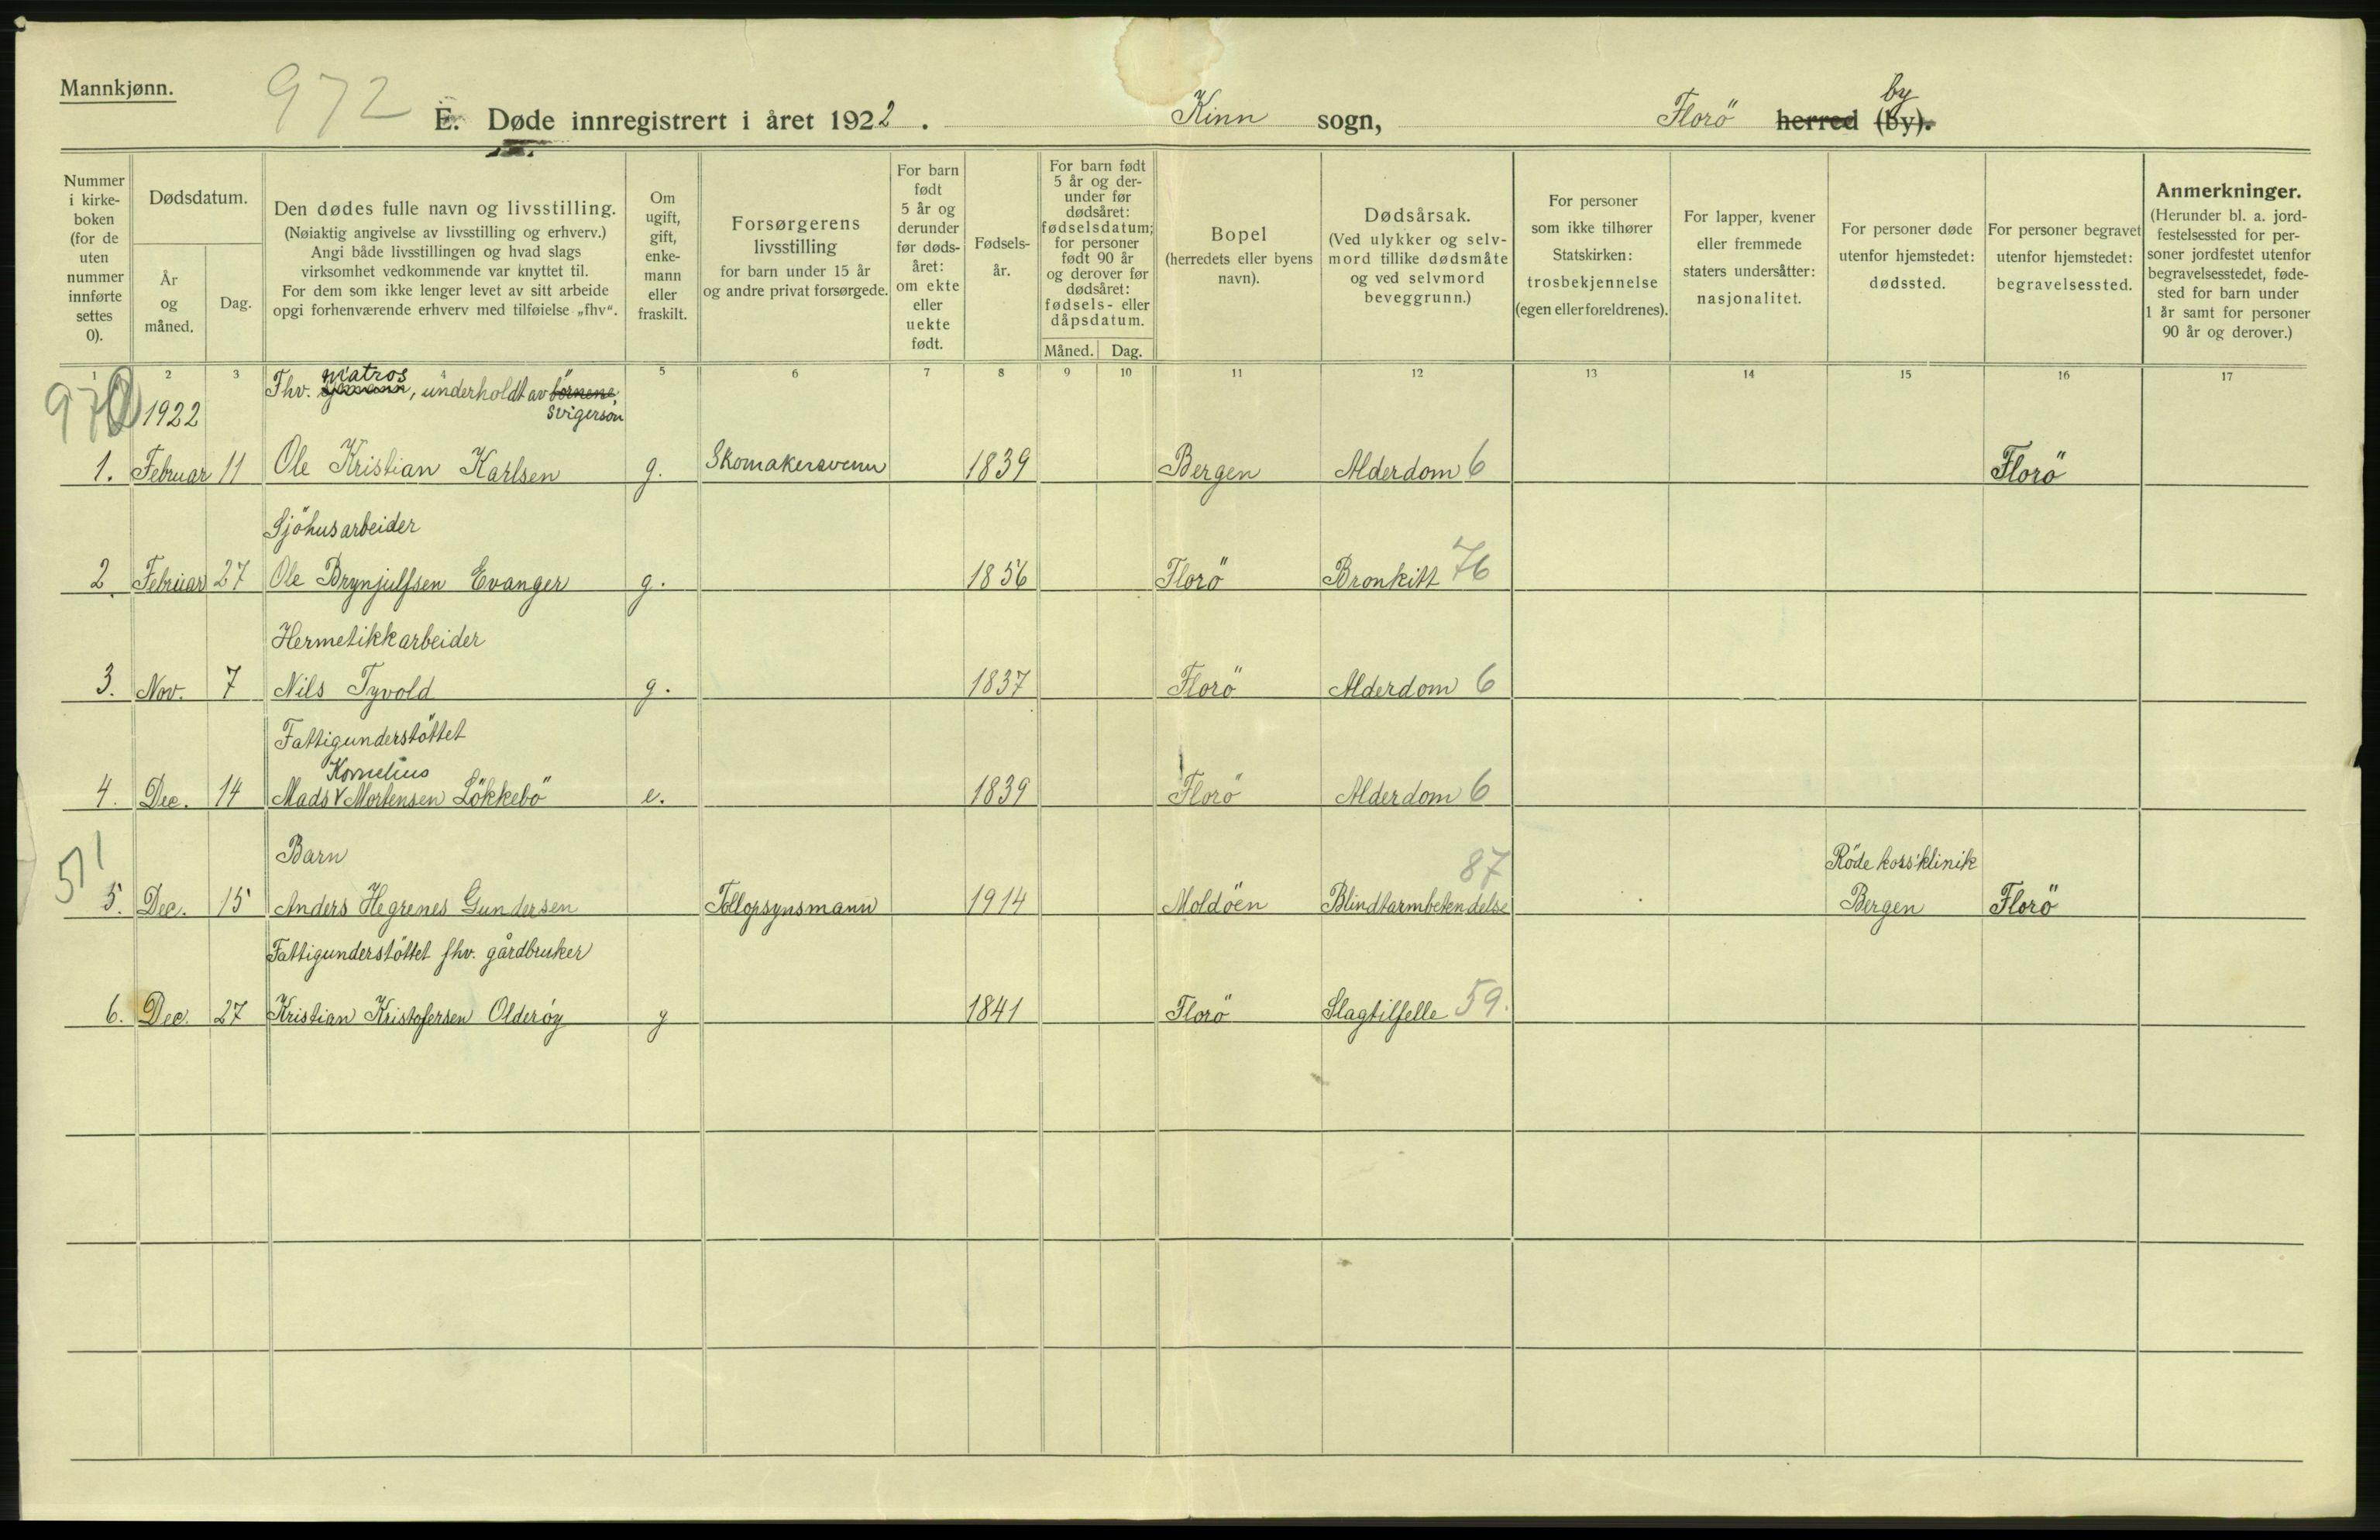 Mannkjønn.
972
E. Døde innregistrert i året 1922. Kinn sogn, Florö herred (by). by
Nummer i kirke- boken (for de uten nummer innførte settes 0).
Dødsdatum.
År og måned.
Dag.
Den dødes fulle navn og livsstilling.
(Nøiaktig angivelse av livsstilling og erhverv.)
Angi både livsstillingen og hvad slags
virksomhet vedkommende var knyttet til.
For dem som ikke lenger levet av sitt arbeide
opgi forhenværende erhverv med tilføielse „fhv“.
Om ugift, gift, enke- mann eller fraskilt.
Forsørgerens
livsstilling
for barn under 15 år
og andre privat forsørgede.
For barn født 5 år og derunder før døds- året: om ekte eller uekte født.
Fødsels- år.
For barn født 5 år og der- under før dødsåret: fødselsdatum; for personer født 90 år og derover før dødsåret: fødsels- eller dåpsdatum.
Måned. Dag.
Bopel
(herredets eller byens
navn).
Dødsårsak.
(Ved ulykker og selv-
mord tillike dødsmåte
og ved selvmord
beveggrunn.)
For personer
som ikke tilhører
Statskirken:
trosbekjennelse
(egen eller foreldrenes).
For lapper, kvener
eller fremmede
staters undersåtter:
nasjonalitet.
For personer døde
utenfor hjemstedet:
dødssted.
For personer begravet
utenfor hjemstedet:
begravelsessted.
Anmerkninger.
(Herunder bl. a. jord-
festelsessted for per-
soner jordfestet utenfor
begravelsesstedet, føde-
sted for barn under
1 år samt for personer
90 år og derover.)
1 2 3 4 5 6 7 8 9 10 11 12 13 14 15 16 17
matros
Fhv. , underholdt av börnene,
1922 svigersön
1. Februar 11 Ole Kristian Karlsen g. Skomakersvenn 1839 Bergen Alderdom 6 Florö
Sjöhusarbeider
2. Februar 27 Ole Brynjulfsen Evanger g. 1856 Florö Bronkitt 76
Hermetikkarbeider
3. Nov. 7 Nils Tyvold g. 1837 Florö Alderdom 6
Fattigunderstöttet
Kornelius
4. Dec. 14 Mads V Mortensen Lökkebö e. 1839 Florö Alderdom 6
51
Barn 87 Röde kors' klinik
5. Dec. 15 Anders Hegrenes Gundersen Tollopsynsmann 1914 Moldöen Blindtarmbetendelse Bergen Florö
Fattigunderstöttet fhv. gårdbruker
6. Dec. 27 Kristian Kristofersen Olderöy g 1841 Florö Slagtilfelle 59.